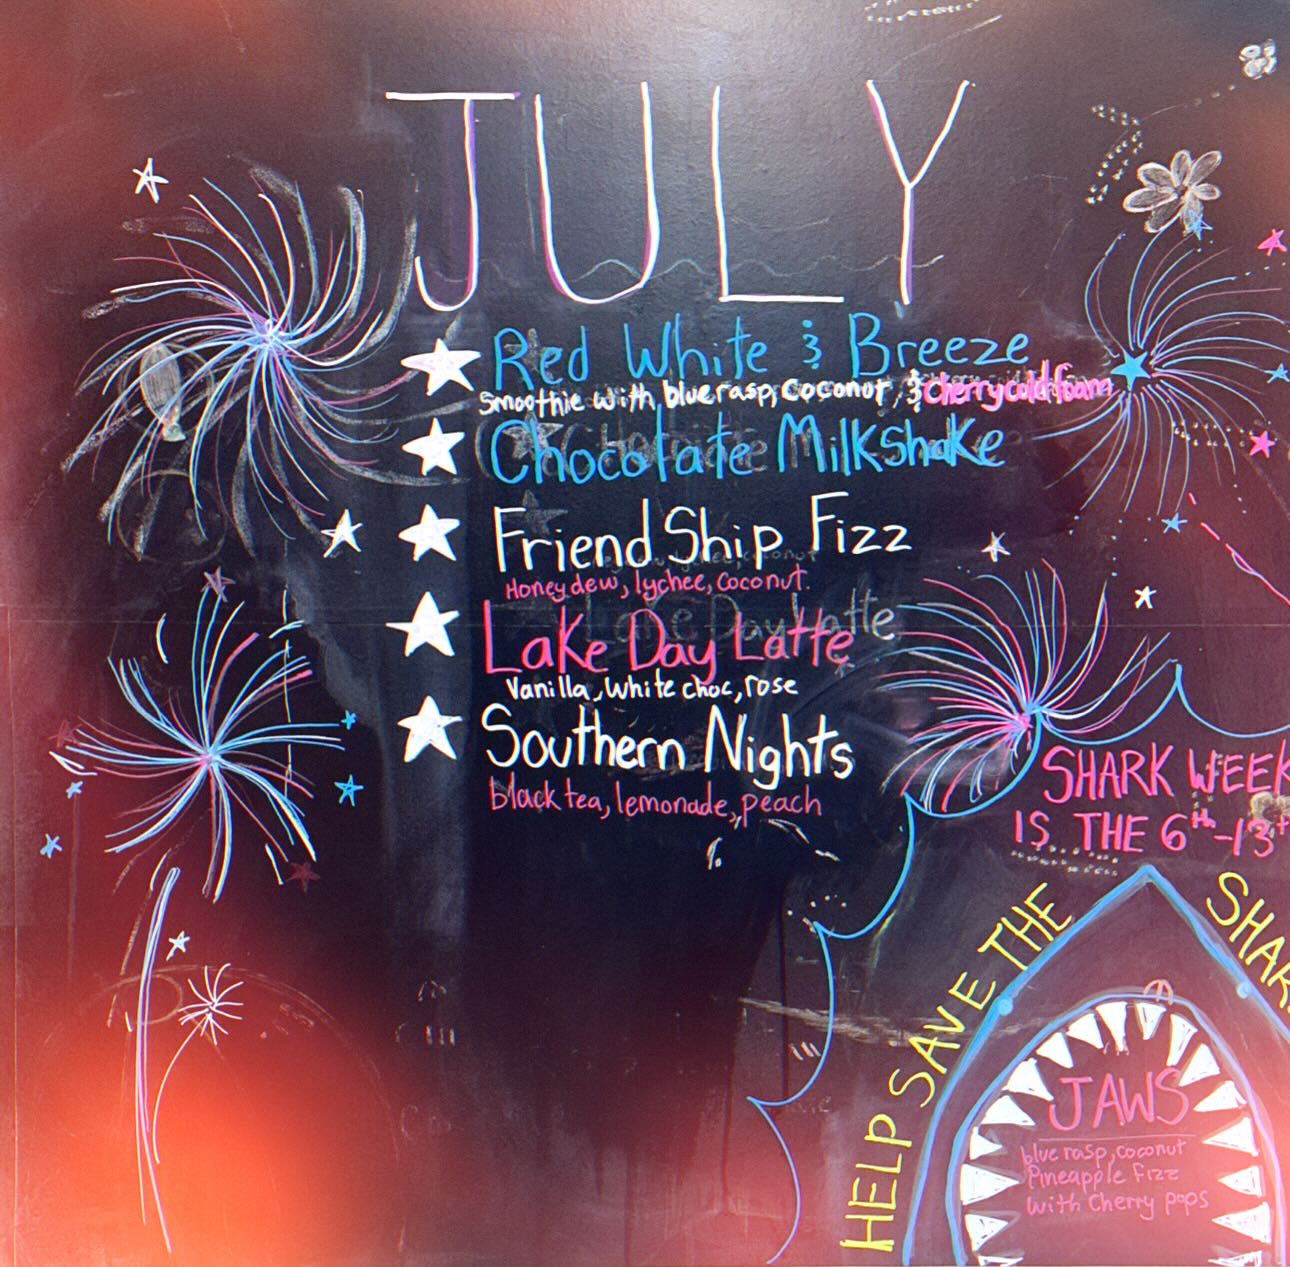 JULY
Red White & Breeze
Smoothie with blue rasp, coconut, & cherry cold foam
Chocolate Milkshake
FriendShip Fizz
Honeydew, lychee, coconut.
Lake Day Latte
Vanilla, white choc, rose
Southern Nights
black tea, lemonade, peach
SHARK WEEK
IS THE 6th-13t
HELP SAVE THE
SHAR
JAWS
blue rasp, coconut
Pineapple Fizz
with Cherry pops